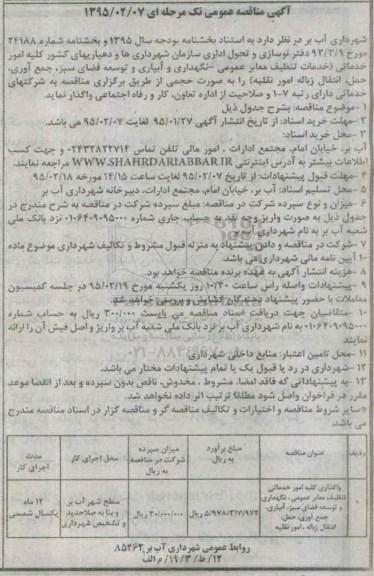 آگهی مناقصه عمومی تک مرحله ای ۱۳۹۵/۰۲/۰۷
شهرداری آب بر در نظر دارد به استناد بخشنامه بودجه سال ۱۳۹۵ و بخشنامه شماره ۲۴۱۸۸
مورخ ۹۳/۳/۹ دفتر نوسازی و تحول اداری سازمان شهرداری ها و دهیاریهای کشور کلیه امور
خدماتی (خدمات تنظیف معابر عمومی -نگهداری و آبیاری و توسعه فضای سبز، جمع آوری،
حمل، انتقال زباله امور نقلیه) را به صورت حجمی از طریق برگزاری مناقصه به شرکتهای
خدماتی دارای رتبه ۷-۱ و صلاحیت از اداره تعاون، کار و رفاه اجتماعی واگذار نماید.
۱-موضوع مناقصه: بشرح جدول ذیل
۲-مهلت خرید اسناد: از تاریخ انتشار آگهی ۹۵/۰۱/۲۷ لغایت ۹۵/۰۲/۰۷ می باشد.
۳-محل خرید اسناد:
آب بر، خیابان امام، مجتمع ادارات ، امور مالی تلفن تماس ۰۲۴۳۲۸۲۲۷۱۴ و جهت کسب
اطلاعات بیشتر به آدرس اینترنتی WWW.SHAHRDARIABBAR.IR مراجعه نمایند.
۴-مهلت قبول پیشنهادات: از تاریخ ۹۵/۰۲/۰۷ لغایت ساعت ۱۴/۱۵ مورخه ۹۵/۰۲/۱۸
۵-محل تسلیم اسناد: آب بر، خیابان امام، مجتمع ادارات، دبیرخانه شهرداری آب بر
۶-میزان و نوع سپرده شرکت در مناقصه: مبلغ سپرده شرکت در مناقصه به شرح مندرج در
جدول ذیل به صورت واریز وجه نقد به حساب جاری شماره ۰۱۰۶۴۰۹۰۹۵۰۰۰ نزد بانک ملی
شعبه آب بر به نام شهرداری آب بر
۷-شرکت در مناقصه و دادن پیشنهاد به منزله قبول مشروط و تکالیف شهرداری موضوع ماده
۱۰ آیین نامه مالی شهرداری می باشد.
۸-هزینه انتشار آگهی به عهده برنده مناقصه خواهد بود.
۹-پیشنهادات واصله راس ساعت ۱۰/۳۰ روز یکشنبه مورخ ۹۵/۰۲/۱۹ در جلسه کمیسیون
معاملات با حضور پیشنهاد دهندگان گشایش و بررسی خواهد شد.
۱۰-متقاضیان جهت دریافت اسناد مناقصه می بایست ۳۰۰/۰۰۰ ریال به حساب شماره
۰۱۰۶۴۰۹۰۹۵۰۰۰ به نام شهرداری آب بر نزد بانک ملی شعبه آب بر واریز و اصل فیش آن را ارائه
نمایند
۱۱-محل تامین اعتبار: منابع داخلی شهرداری
۱۲-شهرداری در رد یا قبول یک یا تمام پیشنهادات مختار می باشد.
۱۳-به پیشنهاداتی که فاقد امضا، مشروط ، مخدوش، ناقص بدون سپرده و بعد از انقضا موعد
مقرر در فراخوان واصل شود مطلقا ترتیب اثر داده نخواهد شد.
*سایر شروط مناقصه و اختیارات و تکالیف مناقصه گر و مناقصه گزار در اسناد مناقصه مندرج
می باشد.
ردیف عنوان مناقصه مبلغ برآورد به ریال میزان سپرده شرکت در مناقصه به ریال محل اجرای کار مدت اجرای کار
۱ واگذاری کلیه امور خدماتی تنظیف معابر عمومی، نگهداری و توسعه فضای سبز، آبیاری، جمع آوری، حمل، انتقال زباله ، امور نقلیه ۵/۹۷۸/۳۱۷/۹۷۲ ریال ۳۰۰/۰۰۰/۰۰۰ ریال سطح شهر آب بر و بنا به صلاحدید و تشخیص شهرداری ۱۲ ماه یکسال شمسی
روابط عمومی شهرداری آب بر ۸۵۲۶۲
۱۲/ط/۳/۱۹/م الف